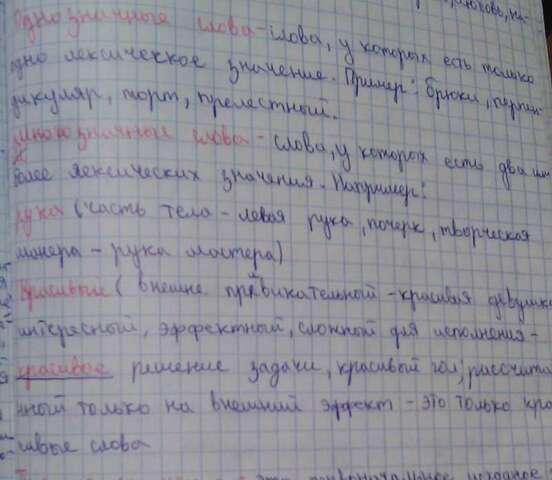 Однозначные слова - слова, у которых есть только
одно лексическое значение. Пример: брюки, перпен-
дикуляр, торт, прелестный.
Многозначные слова - слова, у которых есть два или
более лексических значения. Например:
рука (часть тела - левая рука, почерк, творческая
манера - рука мастера)
Красивый (внешне привлекательный - красивая девушка
интересный, эффектный, сложный для исполнения -
красивое решение задачи, красивый гол; рассчита
нный только на внешний эффект - это только кра
сивые слова
это первоначальное исходное